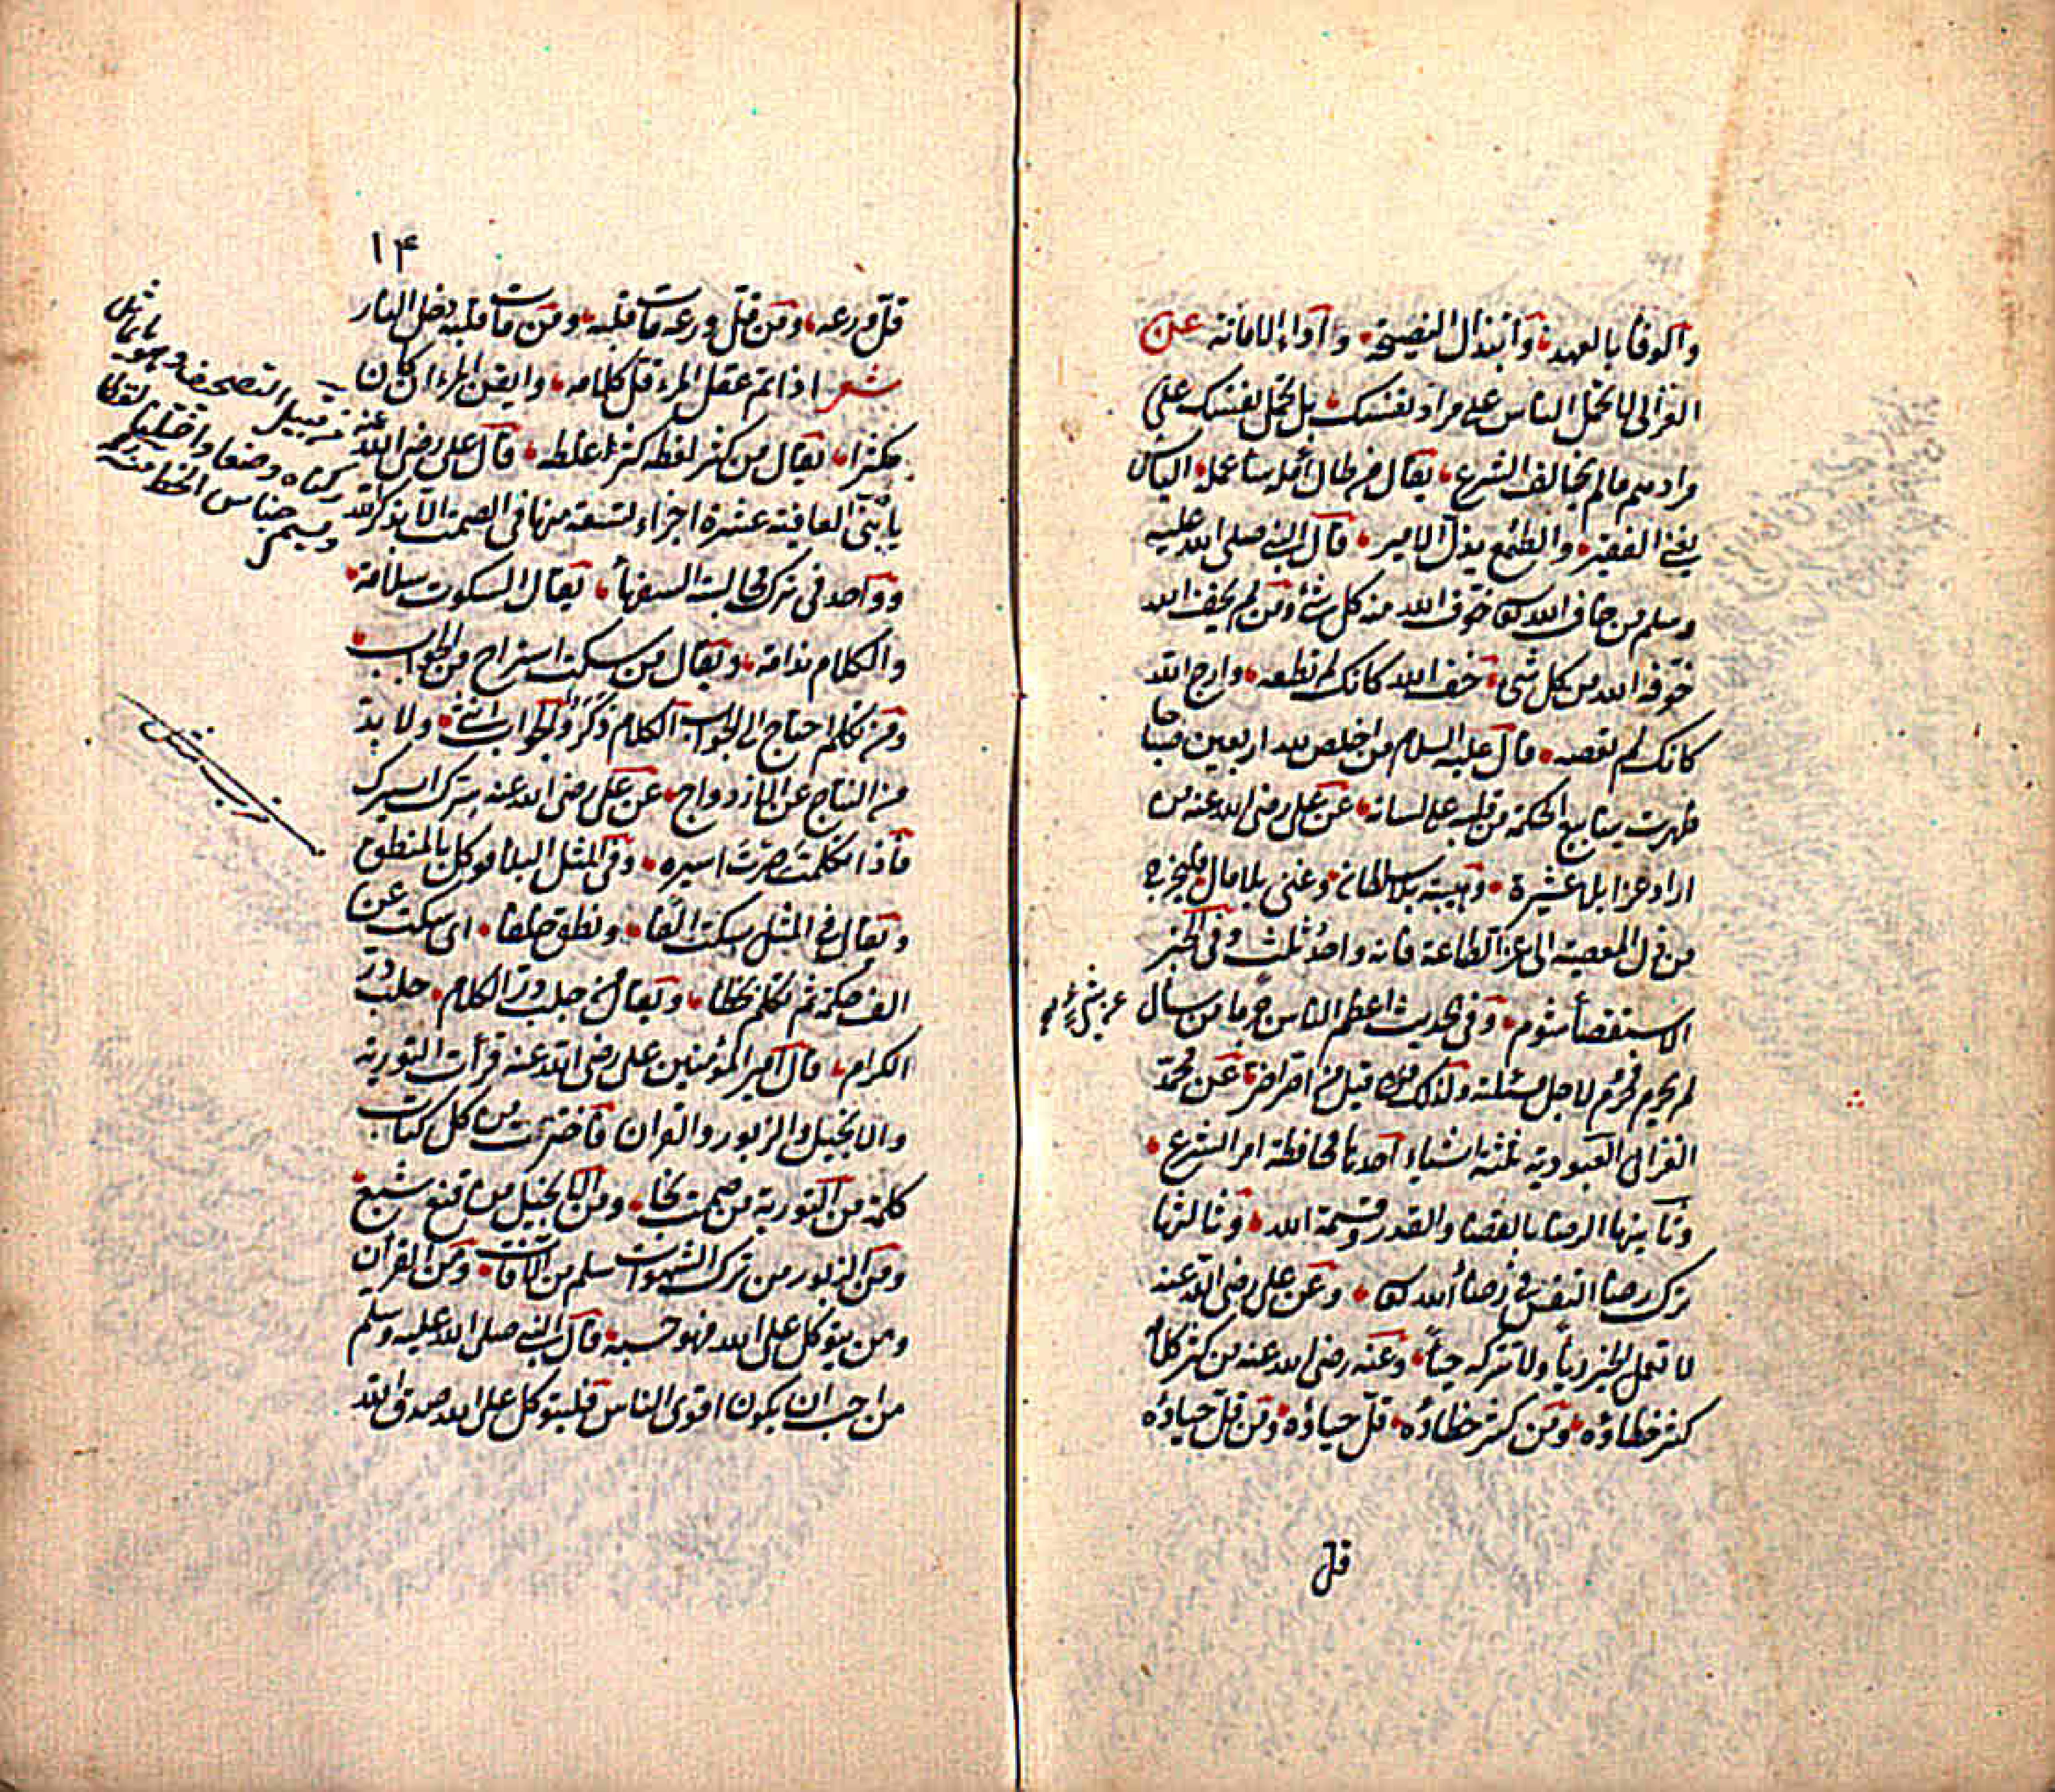 والوفأ بالعهد وابتذال النصيحة وآداء الامانة عن
الغزالى لا تحمل الناس على مراد نفسك بل تحمل نفسك على
مرادهم مالم يخالف الشرع يقال من طال أمله ساء عمله الياس
يغنى الفقير والطمع يذل الامير قال النبى صلى الله عليه
وسلم من خاف الله خوف الله منه كل شئ ومن لم يخف الله
خوفه الله من كل شى خف الله كانك لم تطعه وارج الله
كانك لم تعصه قال عليه السلام من اخلص لله اربعين صباحا
ظهرت ينابيع الحكمة من قلبه على لسانه عن على رضى الله عنه من
اراد عزا بلا عشيرة وهيبة بلا سلطان وغنى بلا مال فليخرج
من ذل المعصية الى عز الطاعة فانه واجد ثلث وفى الخبر
الاستقصأ شوم وفى الحديث اعظم الناس جرما من سأل
لم يحرم فحرم لاجل مسئلته ولذلك قيل عن محمد
الغزالى العبودية ثلثة اشياء احدها محافظة امر الشرع
وثانيتها الرضا بالقضا والقدر وقسمة الله وثالثها
ترك رضا النفس فى رضأ الله وعن على رضى الله عنه
لا تعمل الخير رياً ولا تتركه حياً وعنه رضى الله عنه من كثر كلامه
كثر خطاؤه ومن كثر خطاؤه قلّ حياؤه ومن قلّ حياؤه
قل
١۴
قلّ ورعه ومن قل ورعه مات قلبه ومن مات قلبه دخل النار
شعر اذا تم عقل المرء قل كلامه وايقن المرء ان كان
مكثرا يقال من كثر لفظه كثر غلطه قال على رضى الله عنه
يا بنى العافية عشرة اجزاء تسعة منها فى الصمت الا بذكر الله
وواحد فى ترك مجالسة السفهأ يقال السكوت سلامة
والكلام ندامة ويقال من سكت استراح من الجواب
ومن تكلم احتاج الى الجواب الكلام ذكر والجواب انثى ولا بد
من النتاج عن الازدواج عن على رضى الله عنه سرك اسيرك
فاذا تكلمت صرت اسيره وفى المثل البلأ موكل بالمنطق
ويقال فى المثل سكت الفا ونطق خلفا اى سكت عن
الف حكمة ثم تكلم بخطا ويقال من جلب در الكلام حلب در
الكرام قال امير المؤمنين على رضى الله عنه قرأت التورية
والانجيل والزبور والقران فاخترت من كل كتاب
كلمة من التورية من صمت نجا ومن الانجيل من قنع شبع
ومن الزبور من ترك الشهوات سلم من الآفات ومن القرآن
ومن يتوكل على الله فهو حسبه قال النبى صلى الله عليه وسلم
من احب ان يكون اقوى الناس فليتوكل على الله صدق الله
من قبيل التصحيف وهو ما تماثل
ركناه وضعا واختلفا
ويسمى جناس الخط